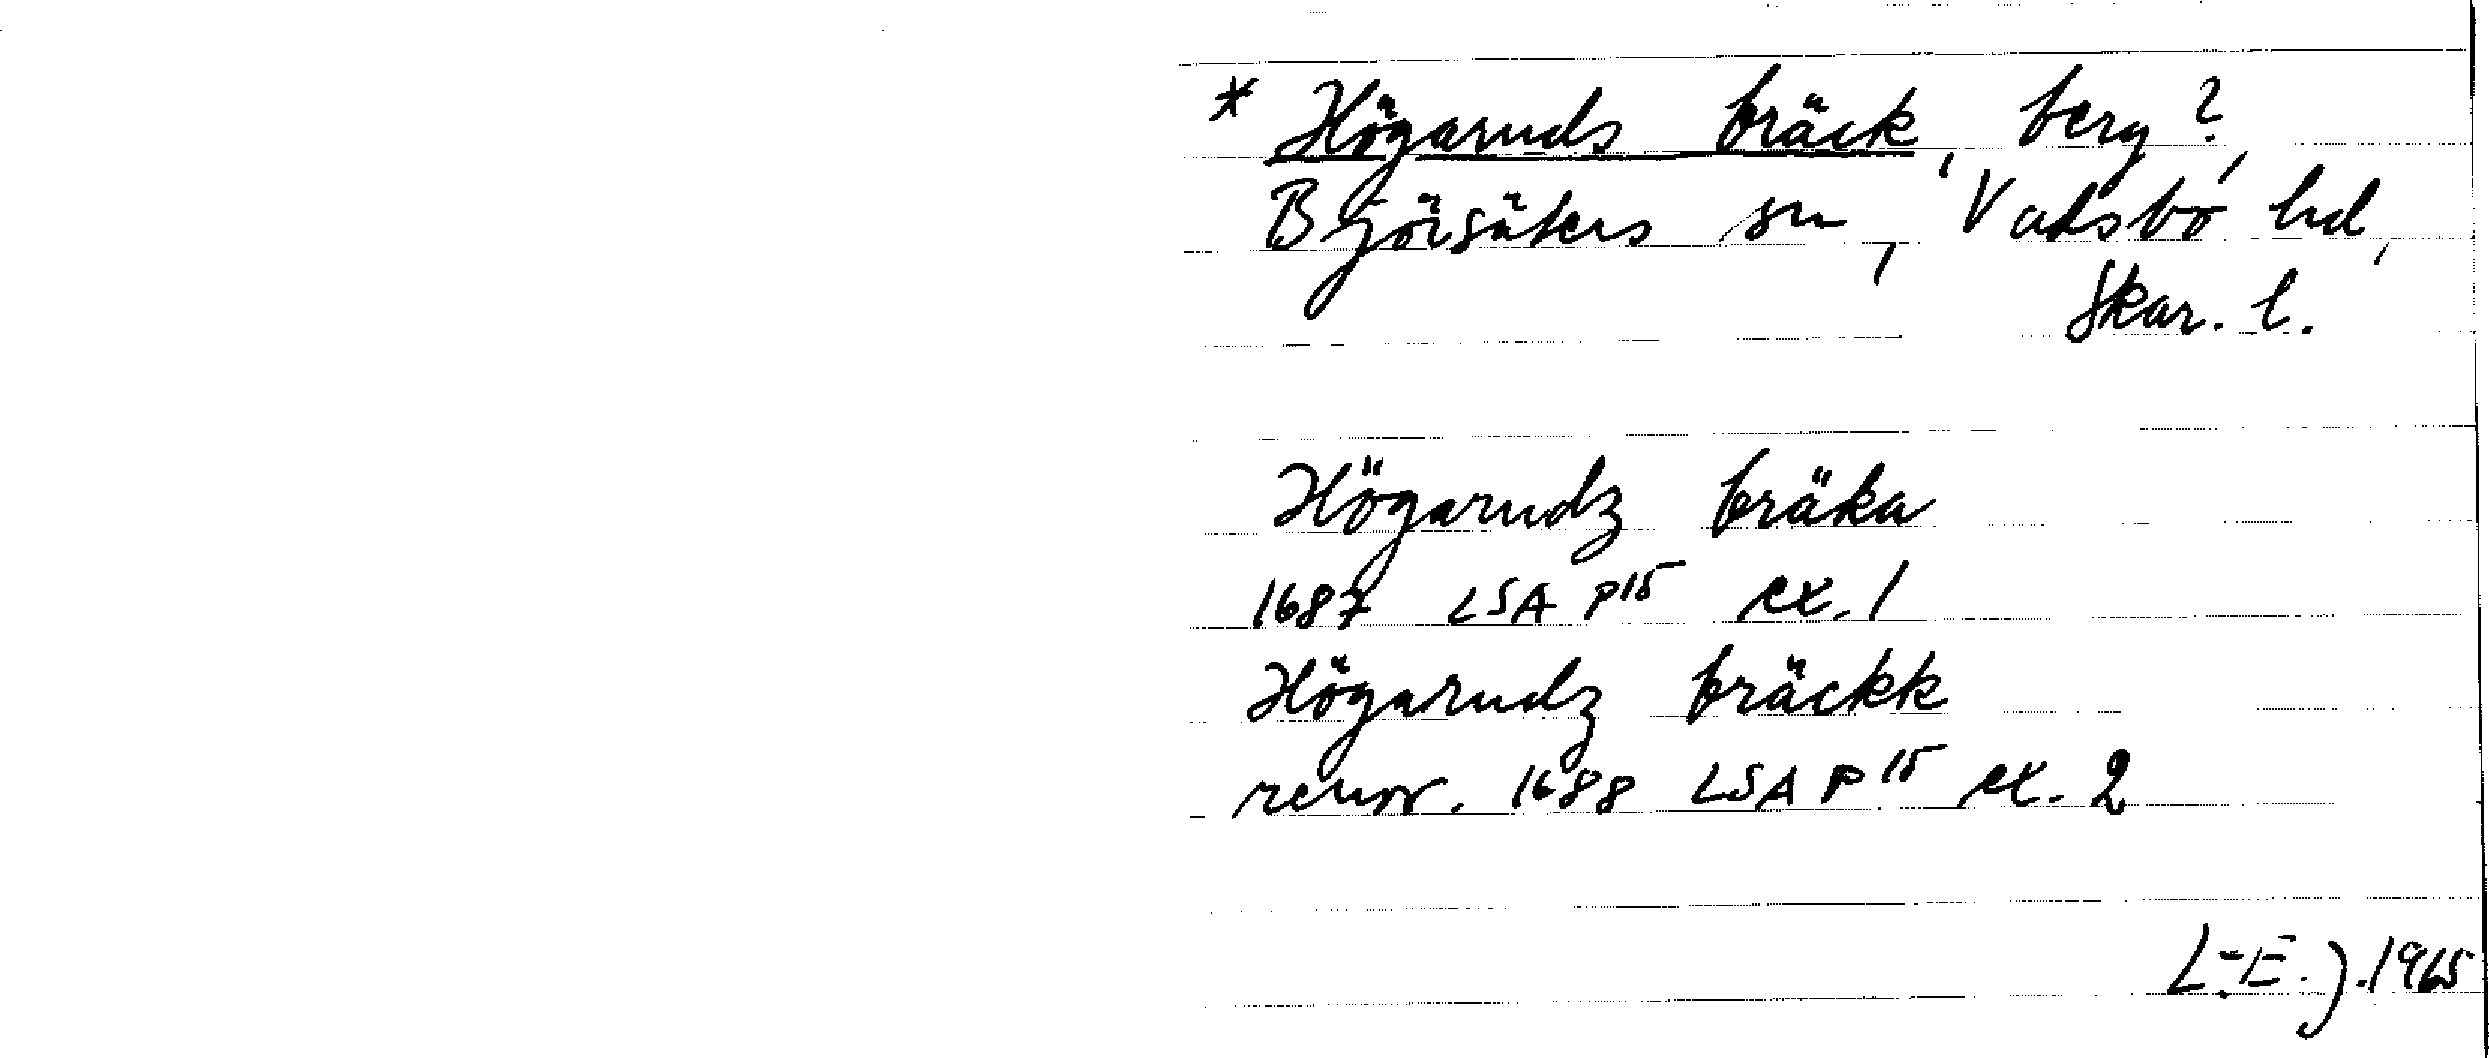 * Högaruds bräck, berg?,
Björsäters sn, Vadsbo hd,
Skar. l.
Högarudz bräka
1687 LSA P15 ex. 1
Högarudz bräckk
renov. 1688 LSA P15 ex. 2
L-E. J. 1965